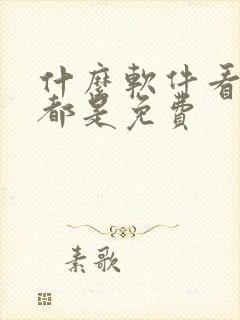 什麼軟件看
都是免費
素歌